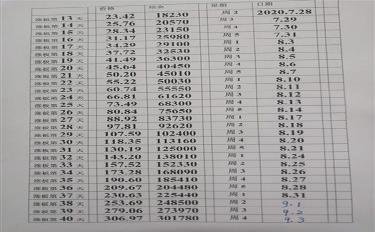 价格 总金 星期 日期
涨板第 13 天 23.42 18230 周 2 2020.7.28
涨板第 14 天 25.76 20570 周 3 7.29
涨板第 15 天 28.34 23150 周 4 7.30
涨板第 16 天 31.17 25980 周 5 7.31
涨板第 17 天 34.29 29100 周 1 8.3
涨板第 18 天 37.72 32530 周 2 8.4
涨板第 19 天 41.49 36300 周 3 8.5
涨板第 20 天 45.64 40450 周 4 8.6
涨板第 21 天 50.20 45010 周 5 8.7
涨板第 22 天 55.22 50030 周 1 8.10
涨板第 23 天 60.74 55550 周 2 8.11
涨板第 24 天 66.81 61620 周 3 8.12
涨板第 25 天 73.49 68300 周 4 8.13
涨板第 26 天 80.84 75650 周 5 8.14
涨板第 27 天 88.92 83730 周 1 8.17
涨板第 28 天 97.81 92620 周 2 8.18
涨板第 29 天 107.59 102400 周 3 8.19
涨板第 30 天 118.35 113160 周 4 8.20
涨板第 31 天 130.19 125000 周 5 8.21
涨板第 32 天 143.20 138010 周 1 8.24
涨板第 33 天 157.52 152330 周 2 8.25
涨板第 34 天 173.28 168090 周 3 8.26
涨板第 35 天 190.60 185410 周 4 8.27
涨板第 36 天 209.67 204480 周 5 8.28
涨板第 37 天 230.63 225440 周 1 8.31
涨板第 38 天 253.69 248500 周 2 9.1
涨板第 39 天 279.06 273970 周 3 9.2
涨板第 40 天 306.97 301780 周 4 9.3